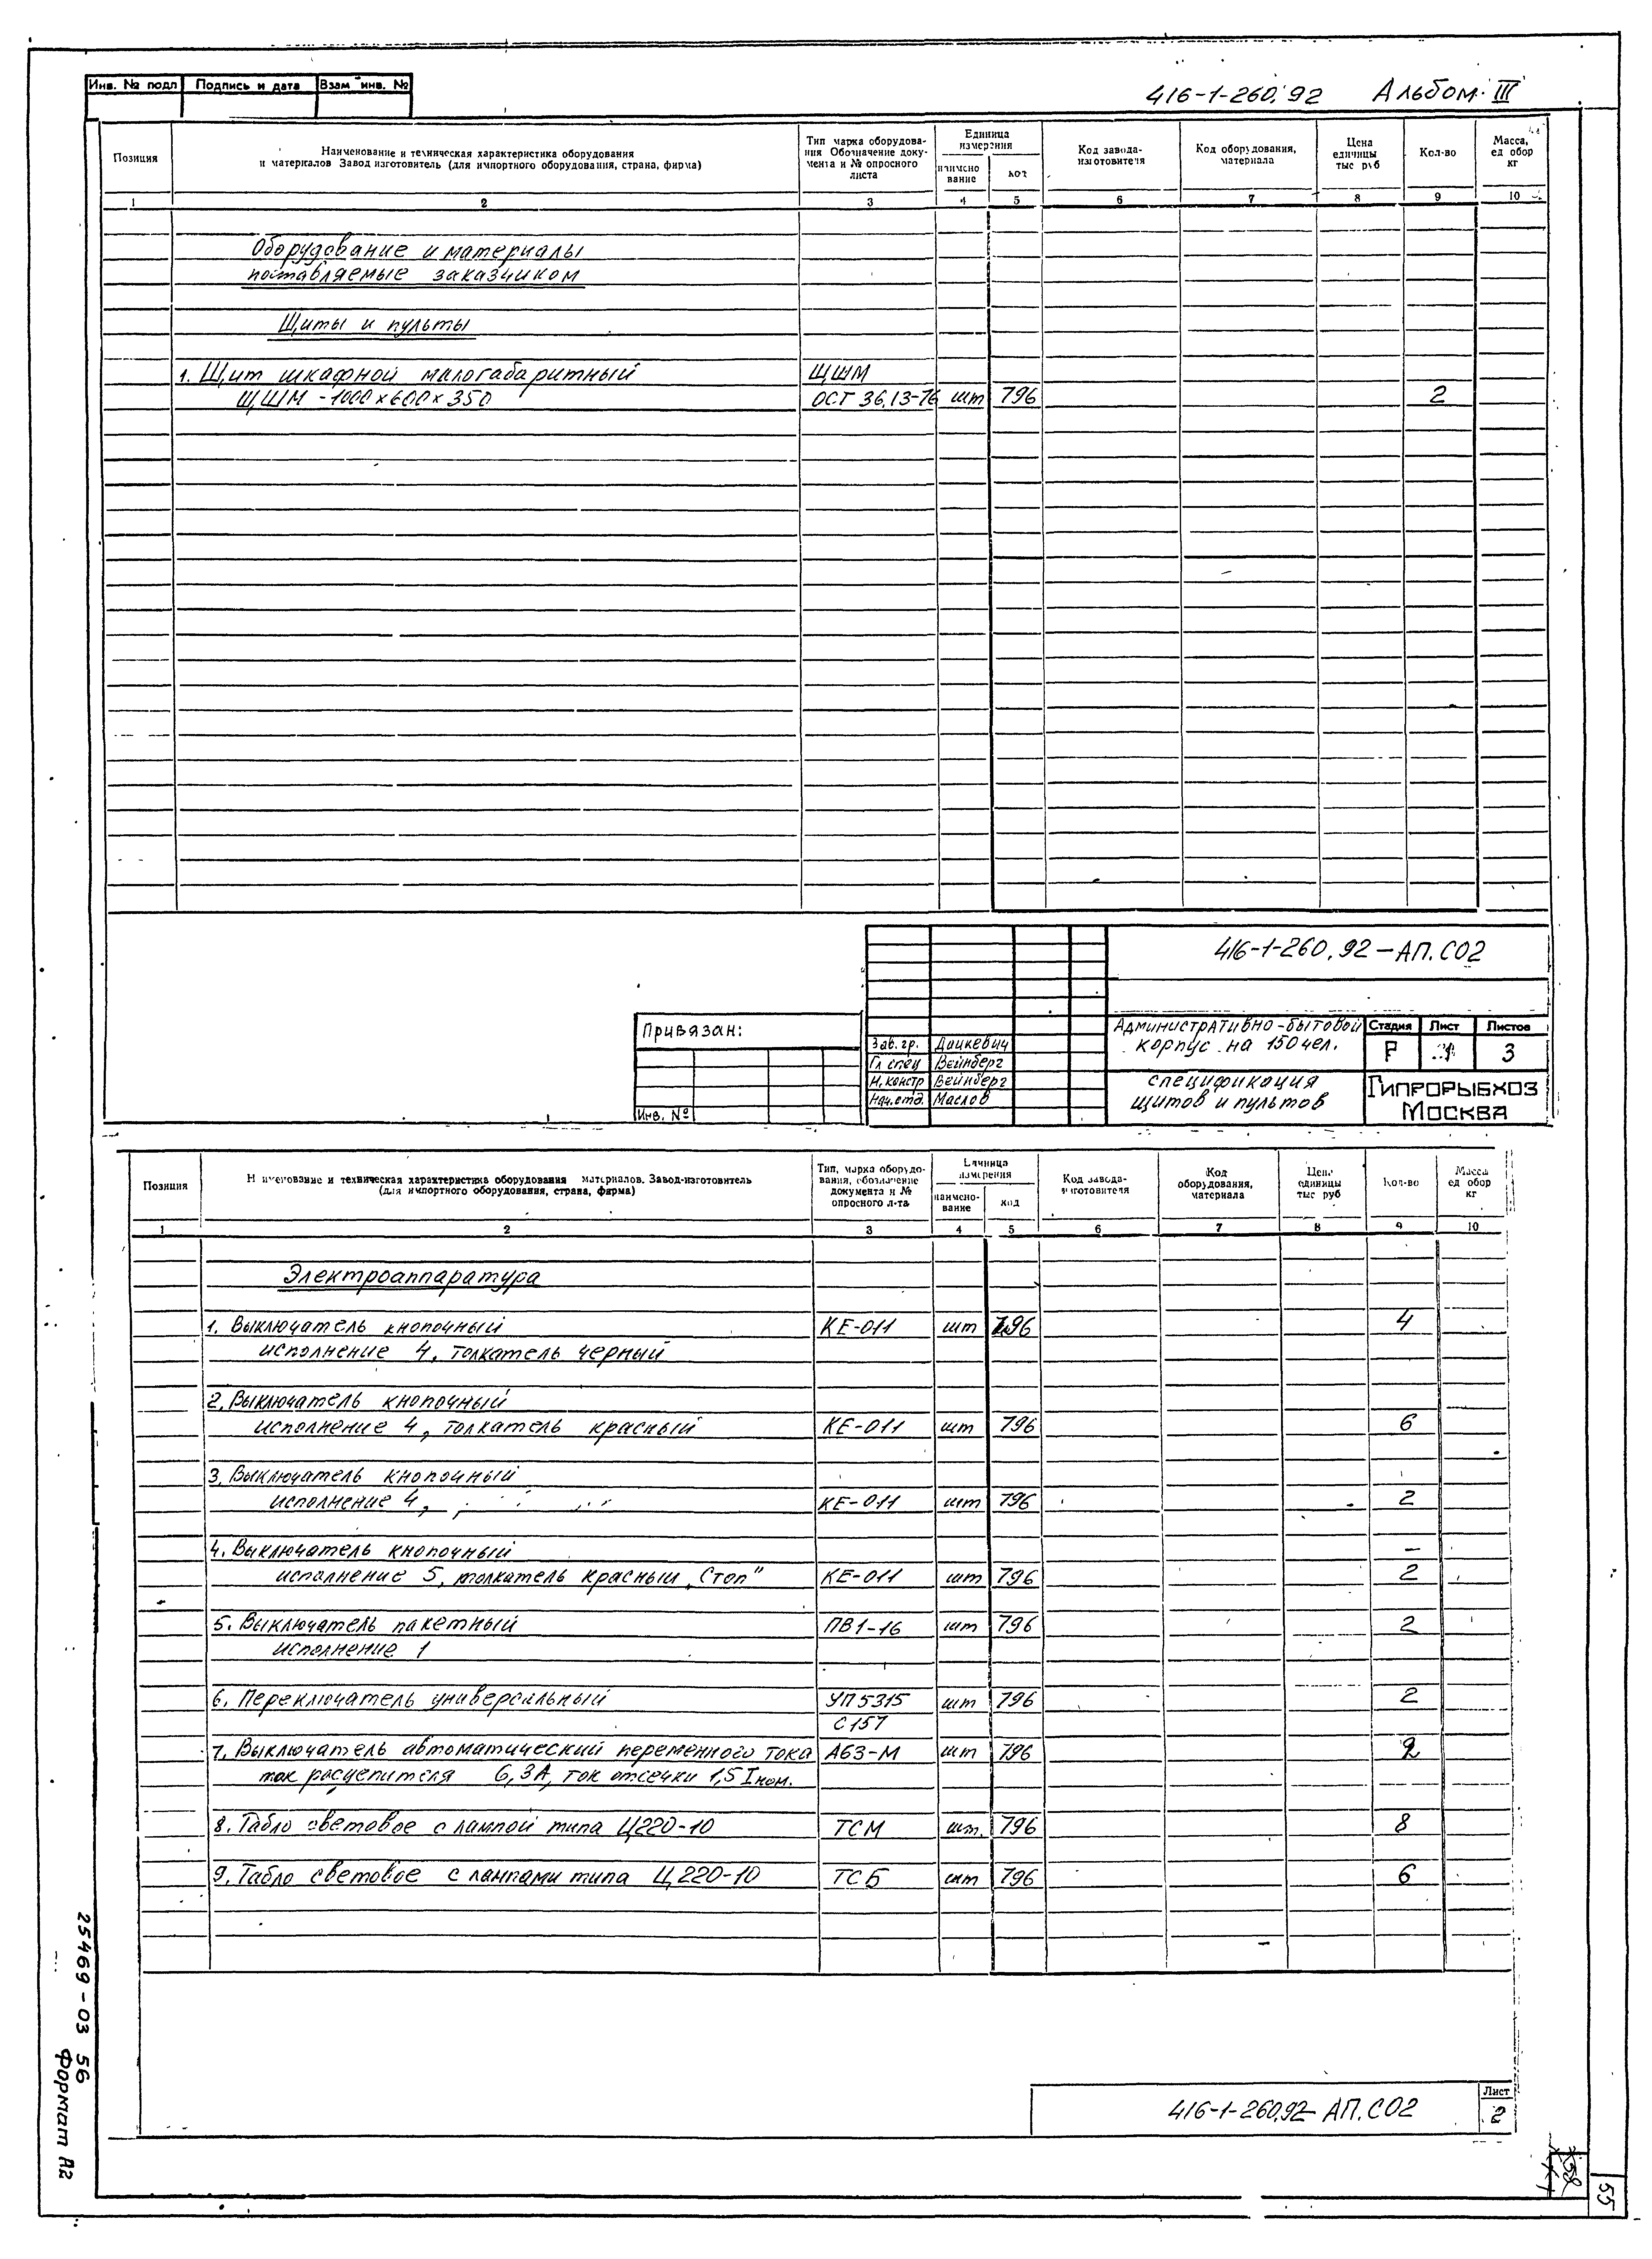 Инв. № подл Подпись и дата Взам инв. №
416-1-260.92 Альбом III
Позиция
Наименование и техническая характеристика оборудования
и материалов Завод изготовитель (для импортного оборудования, страна, фирма)
Тип марка оборудова-
ния Обозначение доку-
мента и № опросного
листа
Единица
измерения
наимено
вание
код
Код завода-
изготовителя
Код оборудования,
материала
Цена
единицы
тыс руб
Кол-во
Масса,
ед обор
кг
1 2 3 4 5 6 7 8 9 10
Оборудование и материалы
поставляемые заказчиком
Щиты и пульты
1. Щит шкафной малогабаритный ЩШМ
ЩШМ-1000х600х350 ОСТ 36.13-76 шт 796 2
416-1-260.92-АП.СО2
Привязан:
Инв. №
Зав. гр. Дацкевич
Гл спец Вейнберг
Н. констр Вейнберг
Нач. отд. Маслов
Административно-бытовой
корпус на 150 чел.
Стадия Лист Листов
Р 1 3
спецификация
щитов и пультов
Гипрорыбхоз
Москва
Позиция
Наименование и техническая характеристика оборудования материалов. Завод-изготовитель
(для импортного оборудования, страна, фирма)
Тип, марка оборудо-
вания, обозначение
документа и №
опросного л-та
Единица
измерения
наимено-
вание
код
Код завода-
изготовителя
Код
оборудования,
материала
Цена
единицы
тыс руб
Кол-во
Масса
ед обор
кг
1 2 3 4 5 6 7 8 9 10
Электроаппаратура
1. Выключатель кнопочный КЕ-011 шт 796 4
исполнение 4, толкатель черный
2. Выключатель кнопочный
исполнение 4, толкатель красный КЕ-011 шт 796 6
3. Выключатель кнопочный
исполнение 4, КЕ-011 шт 796 2
4. Выключатель кнопочный –
исполнение 5, толкатель красный „Стоп" КЕ-011 шт 796 2
5. Выключатель пакетный ПВ1-16 шт 796 2
исполнение 1
6. Переключатель универсальный УП5315 шт 796 2
С157
7. Выключатель автоматический переменного тока А63-М шт 796 2
ток расцепителя 6,3А, ток отсечки 1,5 Iном.
8. Табло световое с лампой типа Ц220-10 ТСМ шт. 796 8
9. Табло световое с лампами типа Ц220-10 ТСБ шт 796 6
416-1-260.92-АП.СО2
Лист
2
25469-03 56
Формат А2
55